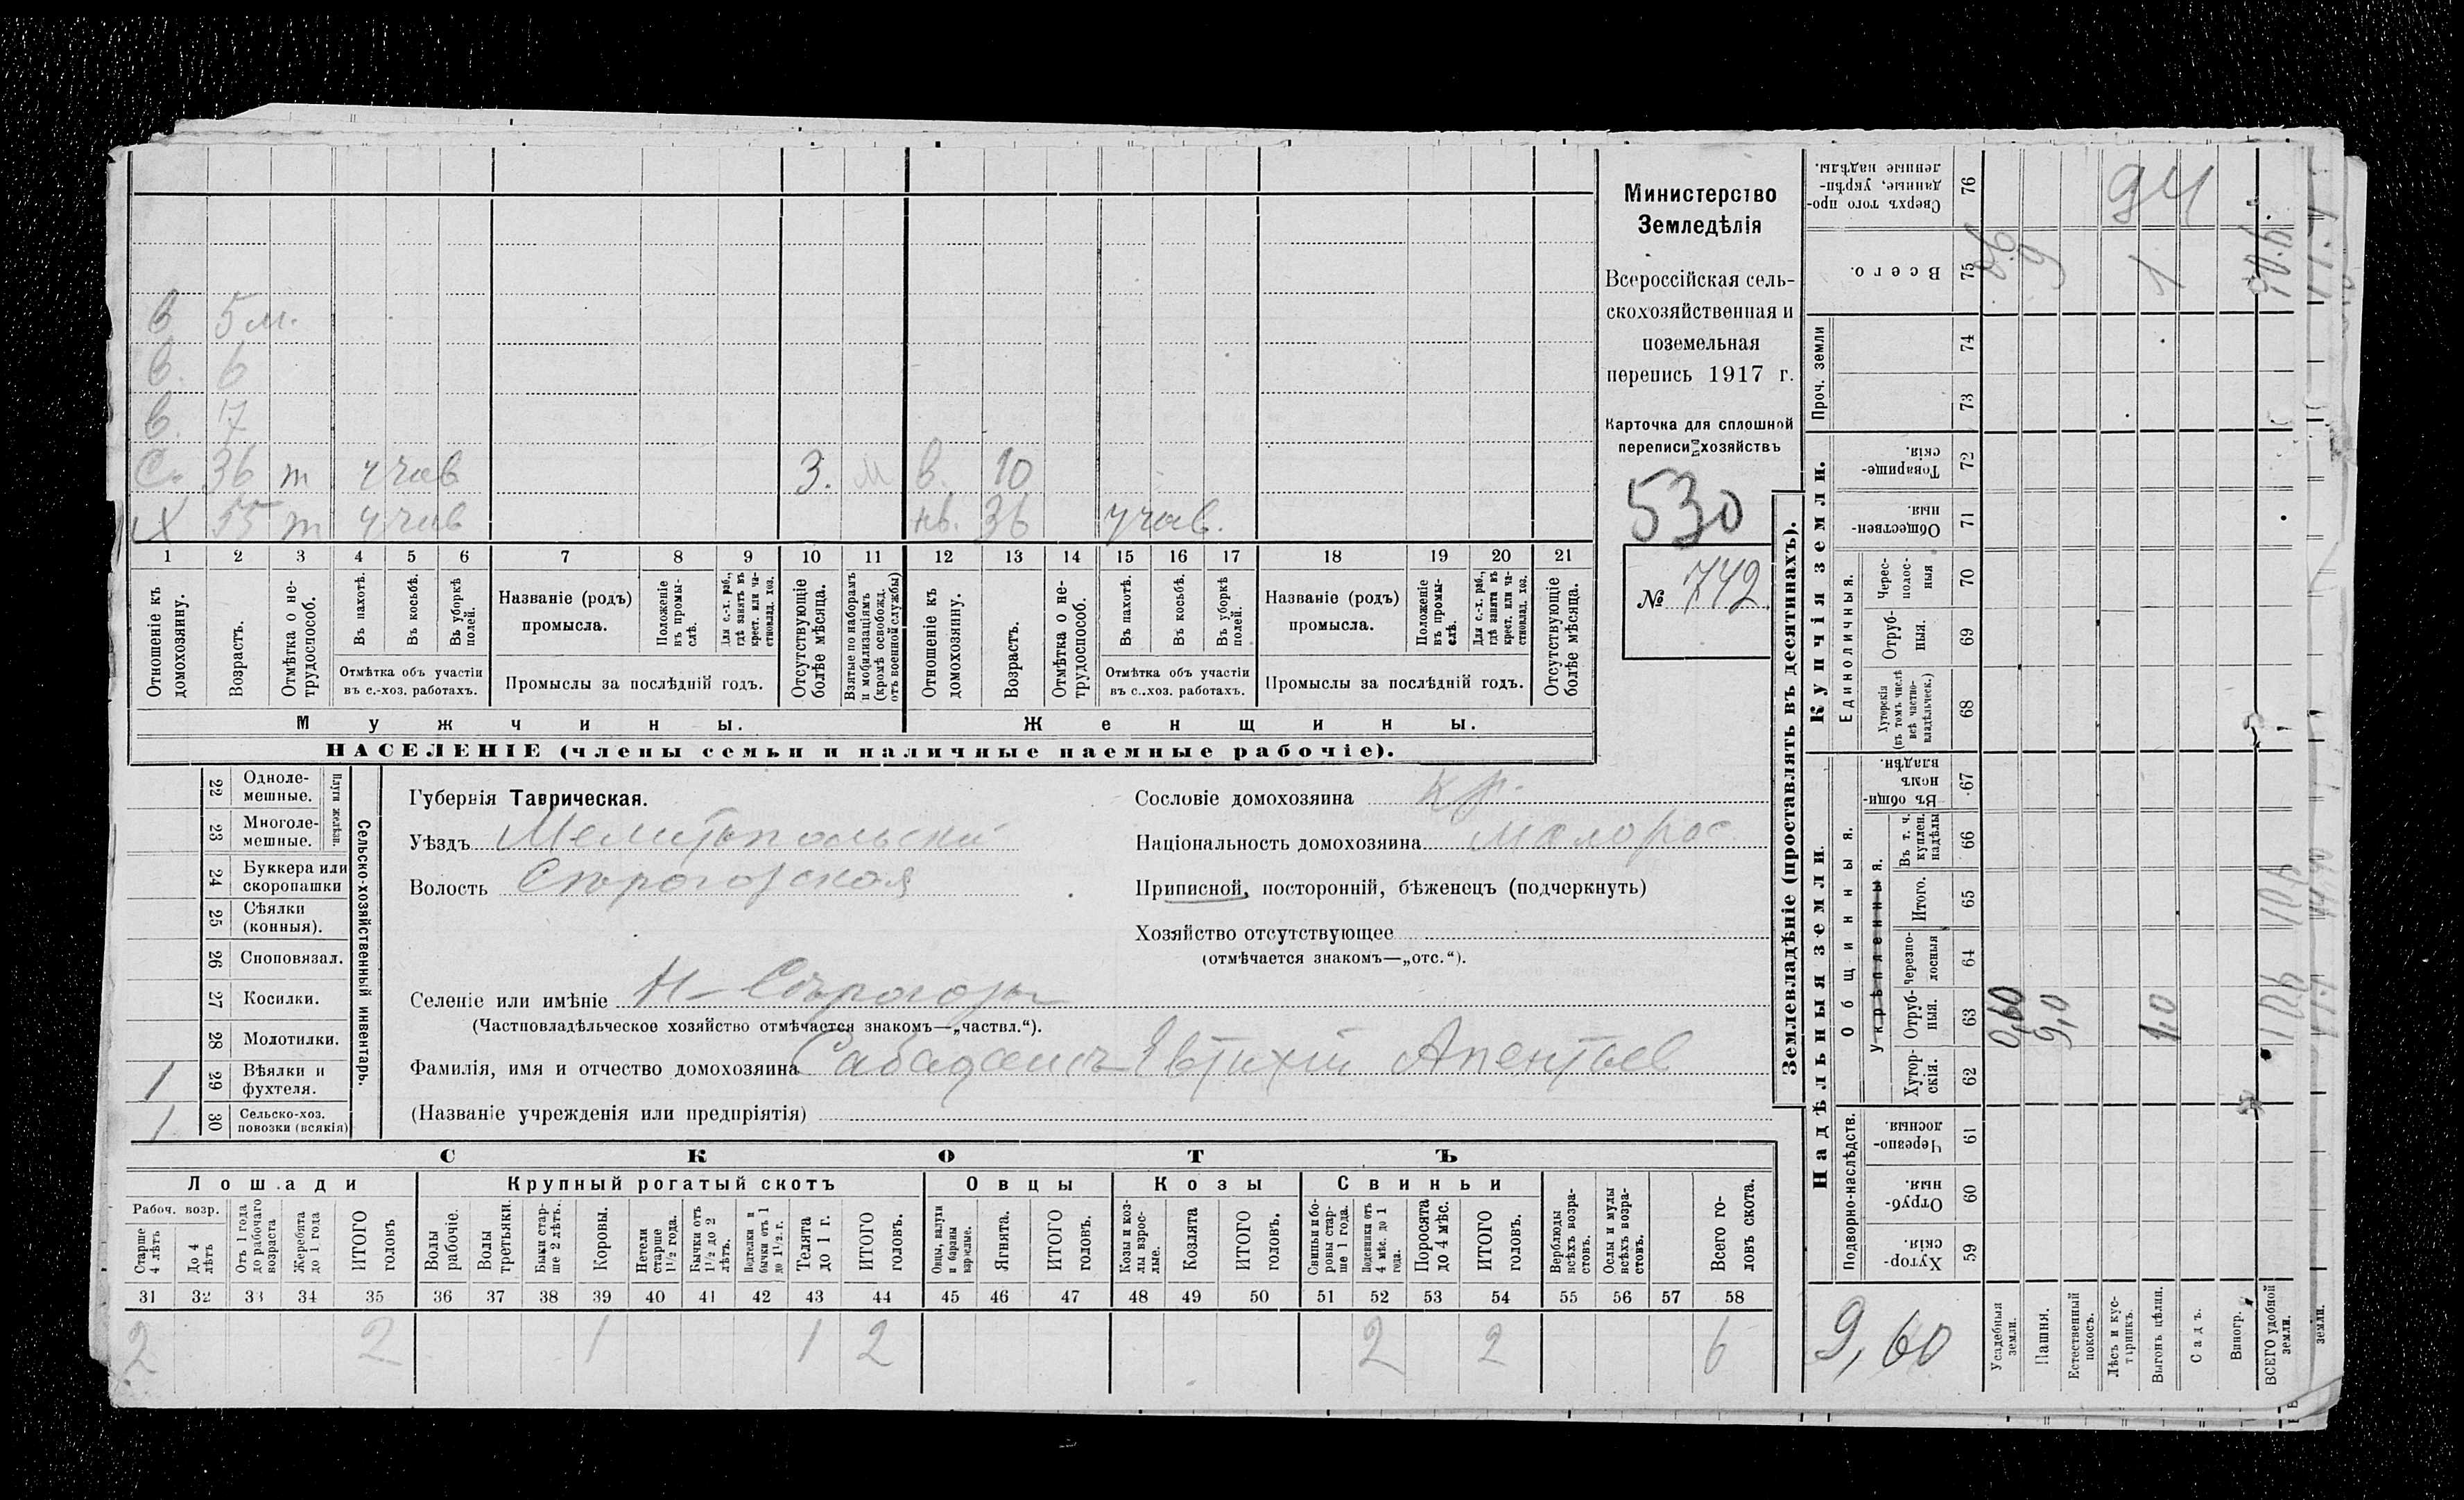 Министерство
Земледѣлія
Всероссійская сель-
скохозяйственная и
поземельная
перепись 1917 г.
Карточка для сплошной
переписи хозяйствъ
530
№ 742
в 5 м.
в. 6
в. 17
С. 36 т участв 3. м в. 10
Х 55 т участв нв. 36 участв.
1 2 3 4 5 6 7 8 9 10 11 12 13 14 15 16 17 18 19 20 21
Отношеніе къ домохозяину.
Возрастъ.
Отмѣтка о не-трудоспособ.
Въ пахотѣ.
Въ косьбѣ.
Въ уборкѣ полей.
Отмѣтка объ участіи въ с.-хоз. работахъ.
Названіе (родъ) промысла.
Положеніе въ промы-слѣ.
Для с.-х. раб., гдѣ занятъ въ крест. или ча-стновлад. хоз.
Промыслы за послѣдній годъ.
Отсутствующіе болѣе мѣсяца.
Взятые по наборамъ и мобилизаціямъ (кромѣ освобожд. отъ военной службы)
Отношеніе къ домохозяину.
Возрастъ.
Отмѣтка о не-трудоспособ.
Въ пахотѣ.
Въ косьбѣ.
Въ уборкѣ полей.
Отмѣтка объ участіи въ с.-хоз. работахъ.
Названіе (родъ) промысла.
Положеніе въ промы-слѣ.
Для с.-х. раб., гдѣ занята въ крест. или ча-стновлад. хоз.
Промыслы за послѣдній годъ.
Отсутствующіе болѣе мѣсяца.
Мужчины. Женщины.
НАСЕЛЕНІЕ (члены семьи и наличные наемные рабочіе).
Сельско-хозяйственный инвентарь.
Плуги желѣзн.
22 Одноле-мешные.
23 Многоле-мешные.
24 Буккера или скоропашки
25 Сѣялки (конныя).
26 Сноповязал.
27 Косилки.
28 Молотилки.
1 29 Вѣялки и фухтеля.
1 30 Сельско-хоз. повозки (всякія)
Губернія Таврическая.
Уѣздъ Мелитопольскій
Волость Сѣрогозская
Селеніе или имѣніе Н-Сѣрогозы
(Частновладѣльческое хозяйство отмѣчается знакомъ—„частвл.“).
Фамилія, имя и отчество домохозяина Сабадашъ Евтихій
(Названіе учрежденія или предпріятія)
Сословіе домохозяина кр.
Національность домохозяина малорос
Приписной, посторонній, бѣженецъ (подчеркнуть)
Хозяйство отсутствующее
(отмѣчается знакомъ—„отс.“).
СКОТЪ
Лошади Крупный рогатый скотъ Овцы Козы Свиньи
Рабоч. возр.
Старше 4 лѣтъ
До 4 лѣтъ
Отъ 1 года до рабочаго возраста
Жеребята до 1 года
ИТОГО головъ
Волы рабочіе.
Волы третьяки.
Быки стар-ше 2 лѣтъ.
Коровы.
Нетели старше 1½ года.
Бычки отъ 1½ до 2 лѣтъ.
Подтелки и бычки отъ 1 до 1½ г.
Телята до 1 г.
ИТОГО головъ.
Овцы, валухи и бараны взрослые.
Ягнята.
ИТОГО головъ.
Козы и коз-лы взрос-лые.
Козлята
ИТОГО головъ.
Свиньи и бо-ровы стар-ше 1 года.
Подсвинки отъ 4 мѣс. до 1 года.
Поросята до 4 мѣс.
ИТОГО головъ.
Верблюды всѣхъ возра-стовъ.
Ослы и мулы всѣхъ возра-стовъ.
Всего го-ловъ скота.
31 32 33 34 35 36 37 38 39 40 41 42 43 44 45 46 47 48 49 50 51 52 53 54 55 56 57 58
2 2 1 1 2 2 2 6
Землевладѣніе (проставлять въ десятинахъ).
Купчія земли.
Надѣльныя земли.
Сверхъ того про-данные, укрѣп-ленные надѣлы. 76
Всего. 75
Проч. земли 74 73
Товарище-скія. 72
Обществен-ныя. 71
Единоличныя.
Черес-полос-ныя 70
Отруб-ныя. 69
Хуторскія (въ томъ числѣ всѣ частно-владѣльческ.) 68
Общинныя.
Въ общи-номъ владѣн. 67
Укрѣпленныя.
Въ т. ч. куплен. надѣлы 66
Итого. 65
Черезпо-лосныя 64
Отруб-ныя. 63
Хутор-скія. 62
Подворно-наслѣдств.
Черезпо-лосныя 61
Отруб-ныя. 60
Хутор-скія. 59
Усадебныя земли.
Пашня.
Естественный покосъ.
Лѣсъ и кус-тарникъ.
Выгонъ цѣлин.
Садъ.
Виногр.
ВСЕГО удобной земли.
земли.
94
0,60
9,0
1,0
9
1
9,60